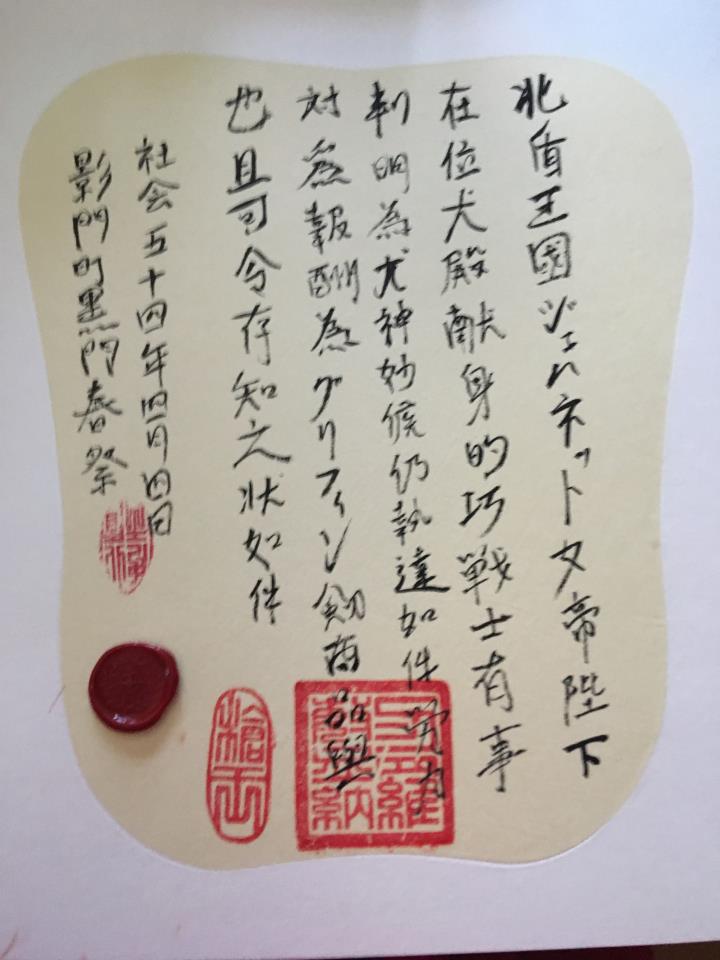 北盾王國ジェハネット女帝陛下
在位犬殿献身的巧戦士有事
判明為尤神妙候仍執達如件労力
対為報酬為グリフィン剣商品與
也且可令存知之状如件
社会五十四年四月四日
影門町黒門春祭